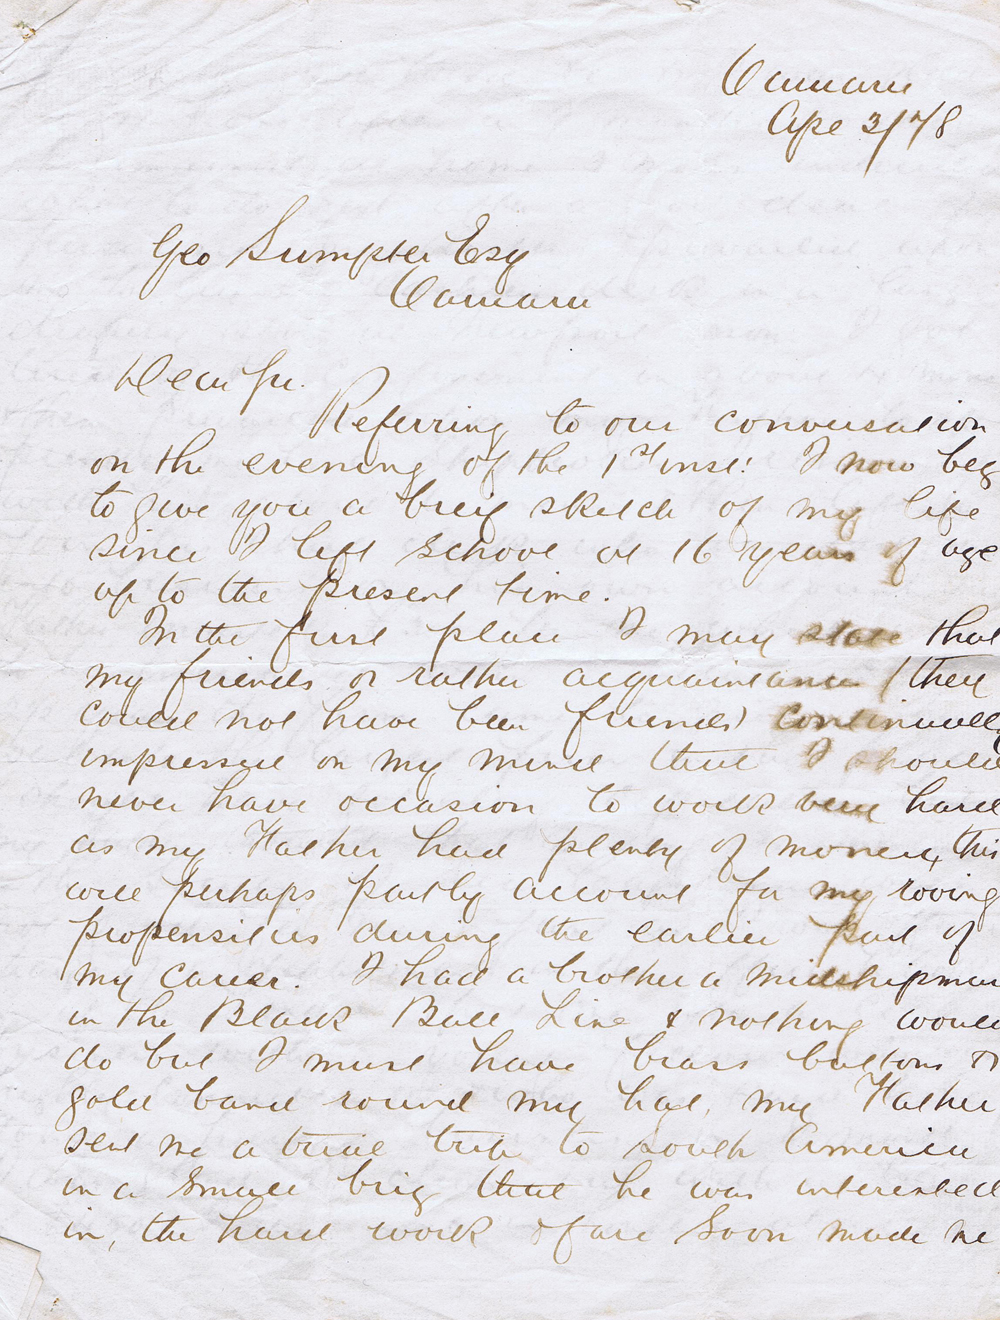 Oamaru
Apl 3/78
Geo Sumpter Esq
Oamaru
Dear Sir.
Referring to our conversation
on the evening of the 1st inst: I now beg
to give you a breif sketch of my life
since I left school at 16 years of age
up to the present time.
In the first place I may state that
my friends or rather acquaintances (they
could not have been friends) continually
impressed on my mind that I should
never have occasion to work very hard
as my Father had plenty of money, this
will perhaps partly account for my roving
propensities during the earlier part of
my career. I had a brother a midshipman
in the Black Ball Line & nothing would
do but I must have brass buttons &
gold band round my hat, my Father
sent me a trial trip to south America
in a small brig that he was interested
in, the hard work & fare soon made me